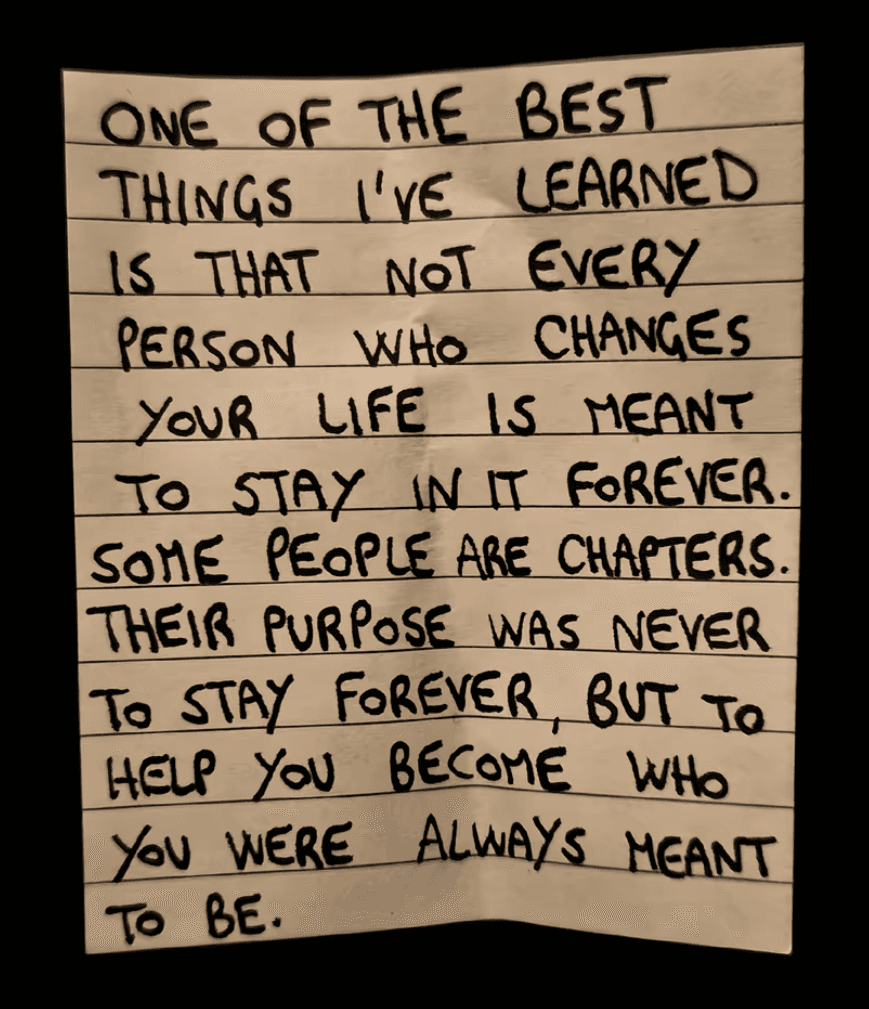 ONE OF THE BEST
THINGS I'VE LEARNED
IS THAT NOT EVERY
PERSON WHO CHANGES
YOUR LIFE IS MEANT
TO STAY IN IT FOREVER.
SOME PEOPLE ARE CHAPTERS.
THEIR PURPOSE WAS NEVER
TO STAY FOREVER, BUT TO
HELP YOU BECOME WHO
YOU WERE ALWAYS MEANT
TO BE.